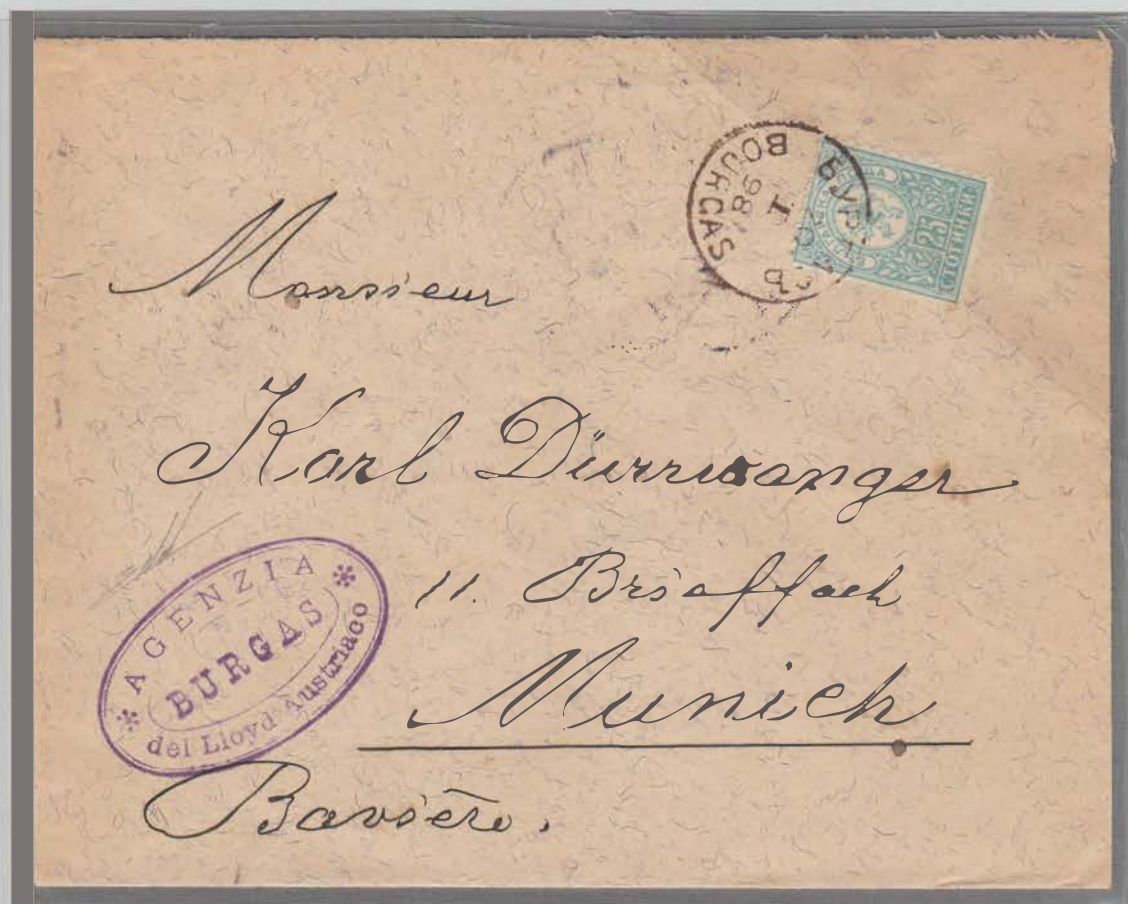 БУРГ
BOURGAS
98
I
25
СТОТИНКИ
Monsieur
Karl Dürrwanger
11. Brieffach
Munich
Bavière.
AGENZIA
BURGAS
del Lloyd Austriaco